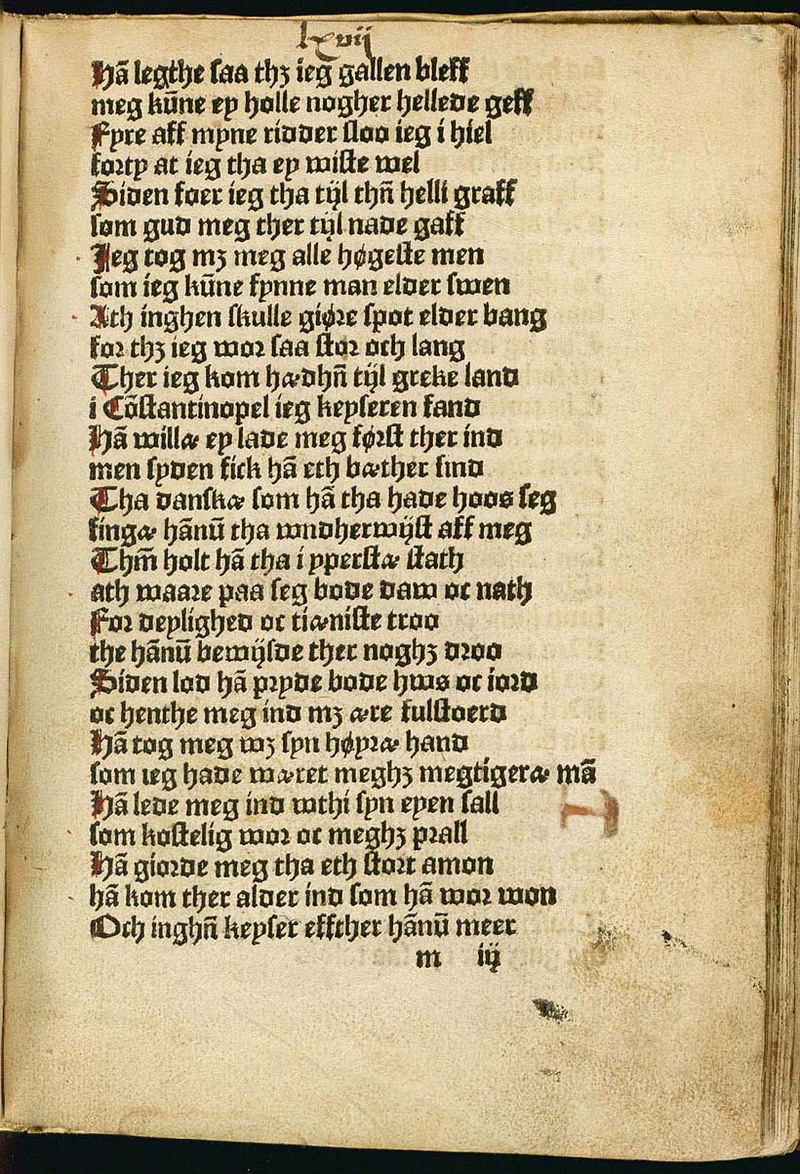 lxvij
Hā legthe saa thꝫ ieg gallen bleff
meg kūne ey holle nogher hellede geff
Fyre aff myne ridder sloo ieg i hiel
forty at ieg tha ey wiste wel
Siden foer ieg tha tijl thn̄ helli graff
som gud meg ther tijl nade gaff
Jeg tog mꝫ meg alle høgeste men
som ieg kūne fynne man elder swen
Ath inghen skulle giøre spot elder bang
for thꝫ ieg wor saa stor och lang
Ther ieg kom hædhn̄ tijl greke land
i Cōstantinopel ieg keyseren fand
Hā willæ ey lade meg først ther ind
men syden fick hā eth bæther sind
Tha danskæ som hā tha hade hoos seg
fingæ hānū tha wndherwijst aff meg
Thm̄ holt hā tha i ypperstæ stath
ath waare paa seg bode daw oc nath
For deylighed oc tiæniste troo
the hānū bewijsde ther noghꝫ droo
Siden lod hā pryde bode hws oc iord
oc henthe meg ind mꝫ ære fulstoerd
Hā tog meg wꝫ syn høyræ hand
som ieg hade wæret meghꝫ megtigeræ mā
Hā lede meg ind wthi syn eyen sall
som kostelig wor oc meghꝫ prall
Hā giorde meg tha eth stort amon
hā kom ther alder ind som hā wor won
Och inghn̄ keyser effther hānū meer
m iij